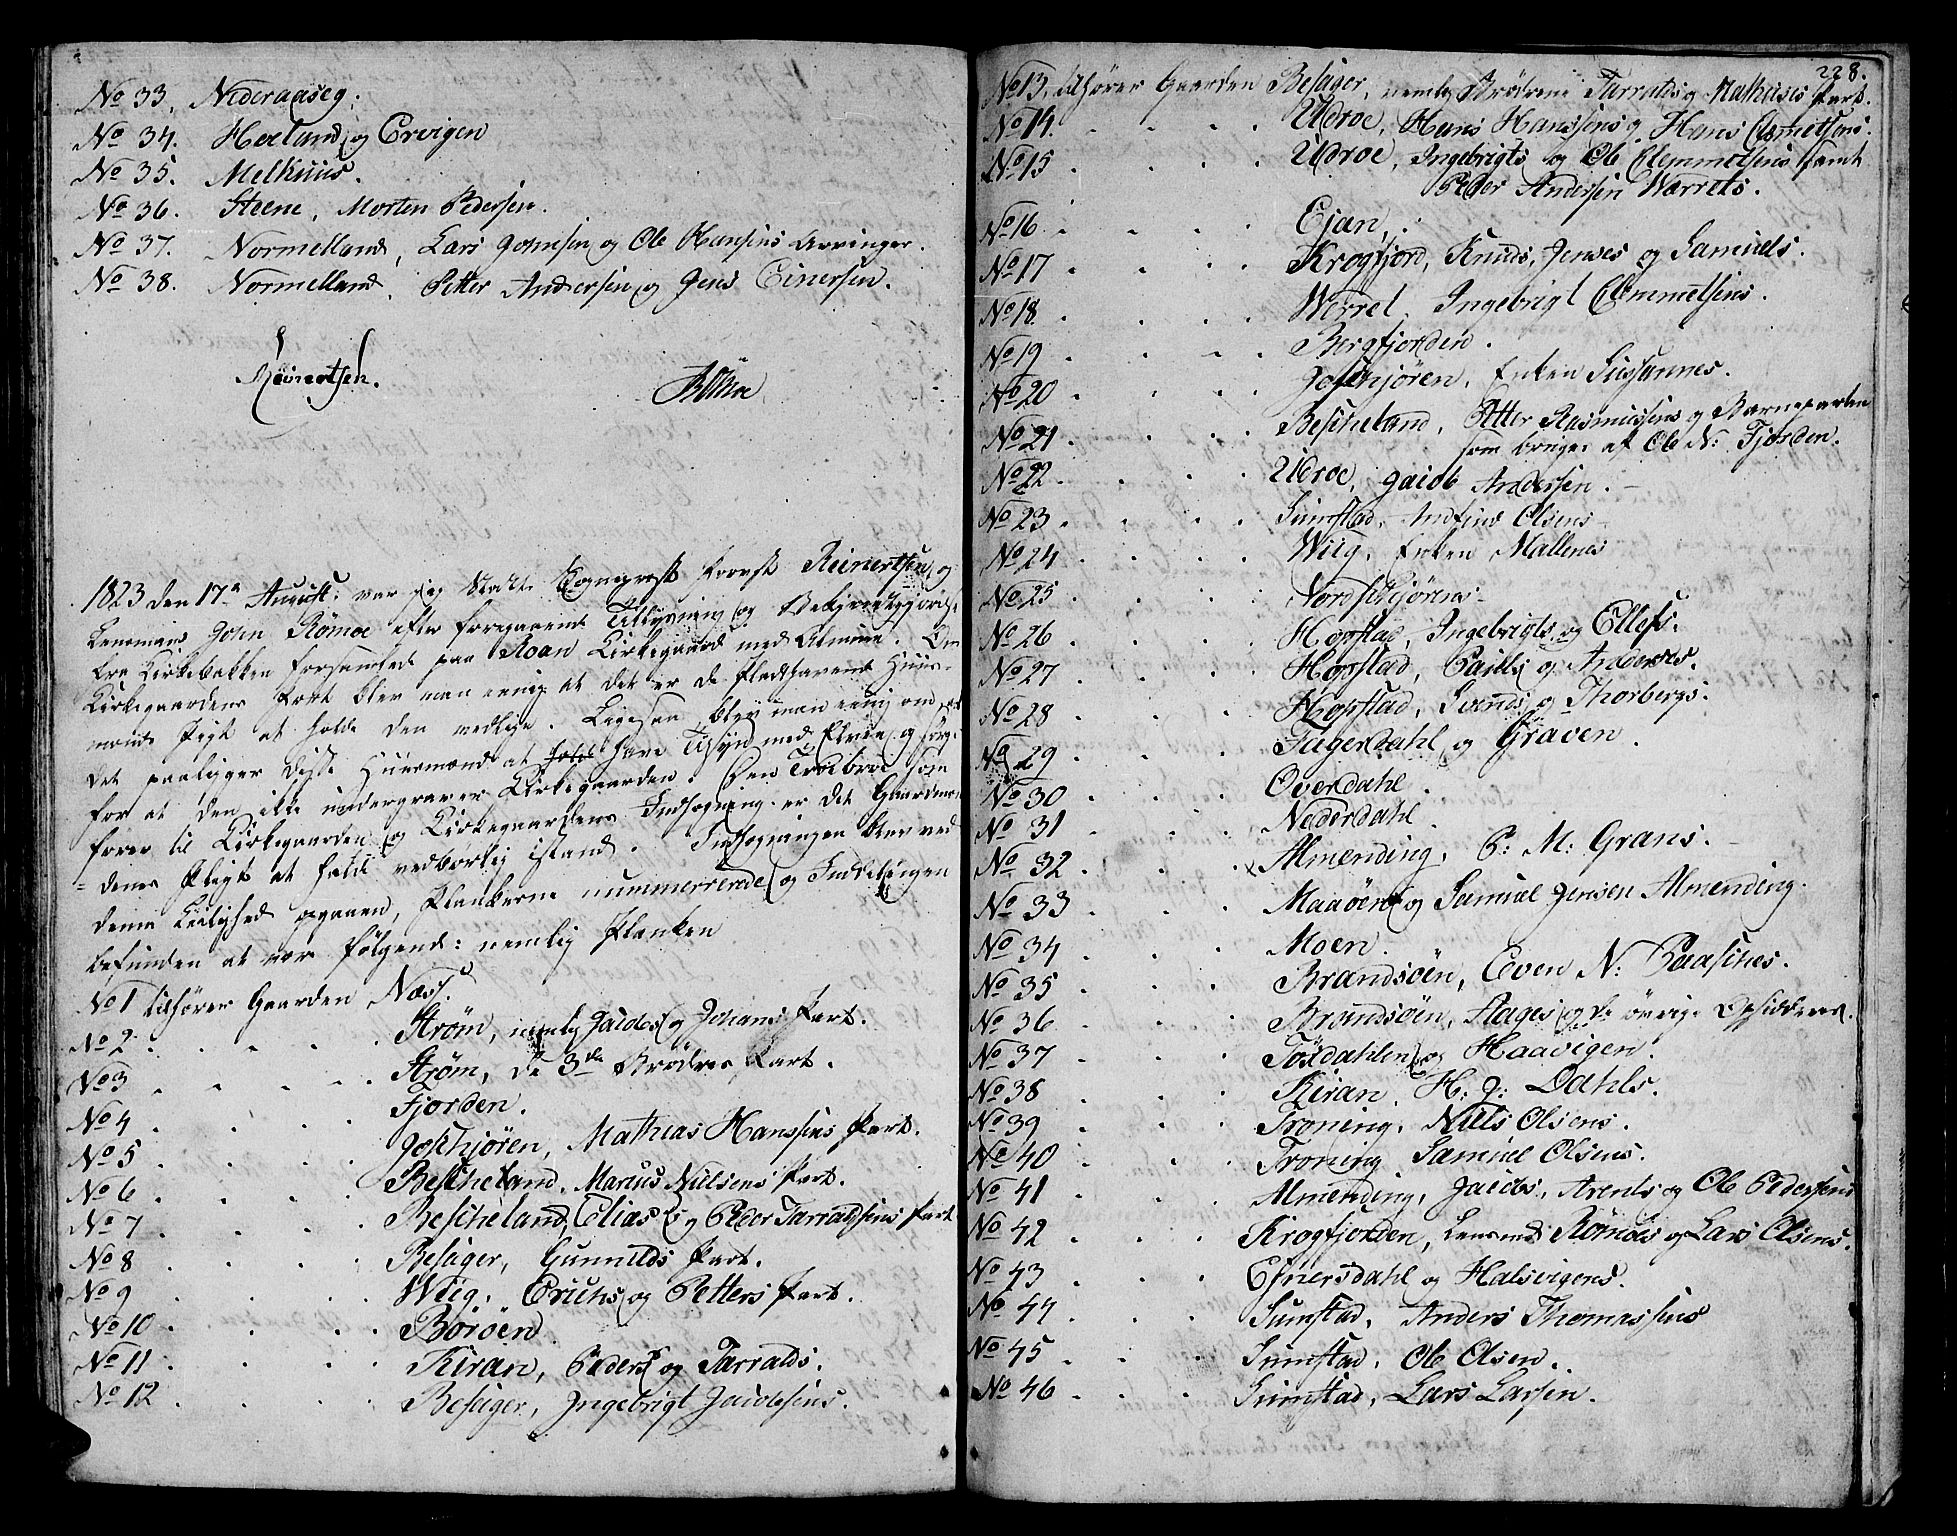 No 33. Nederaaseg.
No 34. Hoeland og Ervigen
No 35. Melkuus.
No 36. Steene, Morten Pedersen.
No 37. Normelland, Lars Johnsen og Ole Hansens Arvinger.
No 38. Normelland, Petter Andersen og Jens Einersen.
Reinertsen. Rømoe
1823 den 17de August var jeg Stedets Sognepræst Provst Reinertsen og
Lensmand John Römoe efter foregaaende Tillysning og Bekjendtgjörelse
fra Kirkebakken forsamlede paa Roan Kirkegaard med Almuen. Om
Kirkegaardens Port blev man eenig at det er de Pladshavende Huus-
mænds Pligt at holde den vedlige. Ligesaa blev man eenig om at
det paaligger disse Huusmænd at have Tilsyn med Elven og sørge
for at den ikke undergraver Kirkegaarden. Den Træbroe som
fører til Kirkegaarden og Kirkegaardens Indhegning er det Gaardmæn-
denes Pligt at holde vedbörlig istand. Indhegningen blev ved
denne Leilighed opgaaen, Plankerne nummererede og Inddelingen
befunden at være følgende: nemlig Planken
No 1 tilhörer Gaarden Næss.
No 2 . . . . Strøm, nemlig Jacobs og Johans Part.
No 3 . . . . Strøm, de 3de Brødres Part.
No 4 . . . . Fjorden.
No 5 . . . . Hofstjören, Mathias Hanssens Part.
No 6 . . . . Bescheland, Marius Nielsens Part.
No 7 . . . . Bescheland, Elias og Peder Tarraldsens Part
No 8 . . . . Besager, Gunnilds Part.
No 9 . . . . Wiig, Erichs og Petters Part.
No 10 . . . . Boröen.
No 11 . . . . Kiran, Peders og Tarralds.
No 12 . . . . Besager, Ingebrigt Jacobsens.
228.
No 13, tilhörer Gaarden Besager, nemlig Brødrene Tarralds og Mathises Part.
No 14. . . . . Uldroe, Hans Hanssens og Hans Clemetsens.
No 15 . . . . Uldroe, Ingebrigts og Ole Clemmetsens samt
Peder Andersen Warrets.
No 16 . . . . Ejan.
No 17 . . . . Krogfjord, Knuds, Jenses og Samuels.
No 18. . . . . Werret, Ingebrigt Clemmetsens.
No 19 . . . . Bergfjorden.
No 20 . . . . Hofstjören, Enken Sussannes.
No 21 . . . . Bescheland, Petter Rasmussens og Barneparten
som bruges af Ole N: Fjorden.
No 22 . . . . Uldroe, Jacob Andersen.
No 23 . . . . Sumstad, Andfind Olsens
No 24 . . . . Wiig, Enken Mallenes
No 25 . . . . Nordskjørens
No 26 . . . . Hopstad, Ingebrigts og Ellefs.
No 27 . . . . Hopstad, Pauls og Anderses.
No 28 . . . . Hopstad, Svends og Thorbergs.
No 29 . . . . Fagerdahl og Graven.
No 30 . . . . Overdahl.
No 31 . . . . Nederdahl
No 32 . . . . x Almending, P: M: Grans.
No 33 . . . . Maaöen og Samuel Jensen Almending.
No 34 . . . . Moen.
No 35 . . . . Brandsöen, Even N: Paasches.
No 36 . . . . Brandsöen, Aages og de övrige Opsidderes.
No 37 . . . . Tösdahlen og Haavigen.
No 38 . . . . Kiran, H: J: Dahls.
No 39 . . . . Troning, Niels Olsens.
No 40 . . . . Troning Samuel Olsens.
No 41 . . . . Almending, Jacobs, Arents og Ole Pedersens
No 42 . . . . Krogfjorden, Lensmd Römoes og Lars Olsens.
No 43 . . . . Einersdahl og Halsvigens.
No 44 . . . . Sumstad, Anders Thomassens
No 45 . . . . Sumstad, Ole Olsen.
No 46 . . . . Sumstad, Lars Larsen.